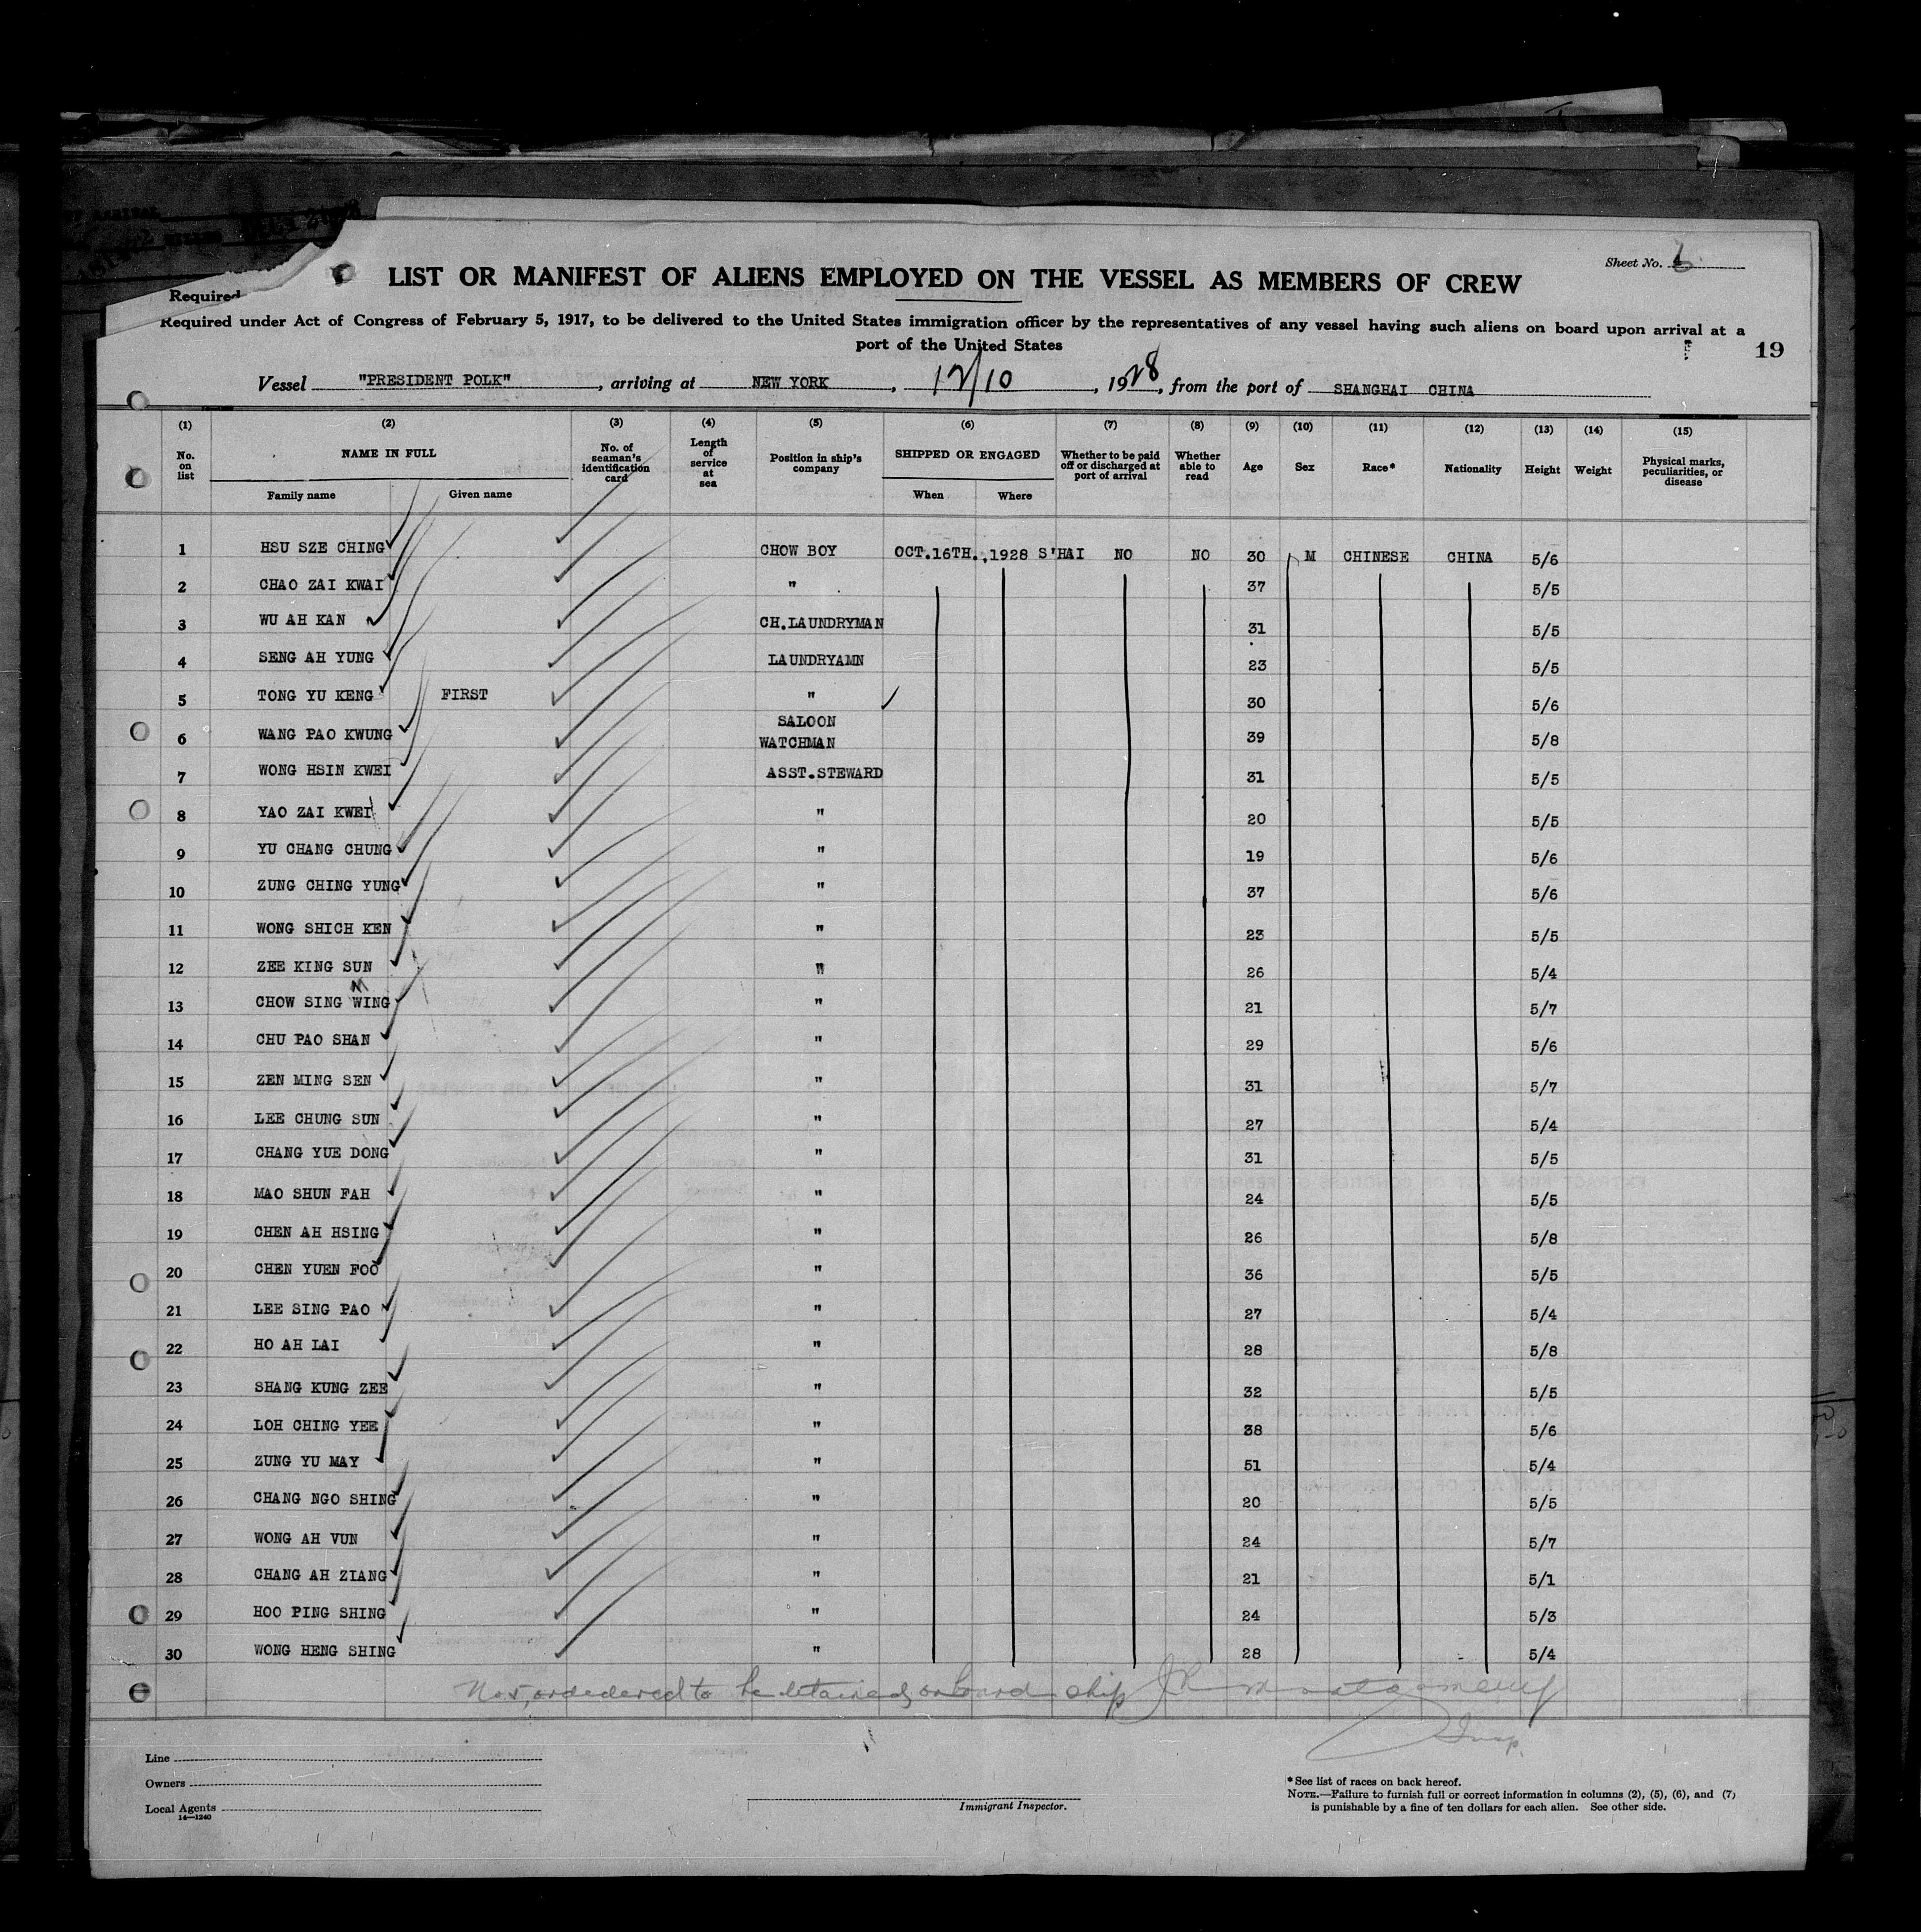 Sheet No. 6
LIST OR MANIFEST OF ALIENS EMPLOYED ON THE VESSEL AS MEMBERS OF CREW
Required
Required under Act of Congress of February 5, 1917, to be delivered to the United States immigration officer by the representatives of any vessel having such aliens on board upon arrival at a
port of the United States
19
Vessel "PRESIDENT POLK", arriving at NEW YORK, 12/10, 1928, from the port of SHANGHAI CHINA
(1) (2) (3) (4) (5) (6) (7) (8) (9) (10) (11) (12) (13) (14) (15)
No. on list NAME IN FULL No. of seaman's identification card Length of service at sea Position in ship's company SHIPPED OR ENGAGED Whether to be paid off or discharged at port of arrival Whether able to read Age Sex Race* Nationality Height Weight Physical marks, peculiarities, or disease
Family name Given name When Where
1 HSU SZE CHING CHOW BOY OCT.16TH.,1928 S'HAI NO NO 30 M CHINESE CHINA 5/6
2 CHAO ZAI KWAI " 37 5/5
3 WU AH KAN CH.LAUNDRYMAN 31 5/5
4 SENG AH YUNG LAUNDRYAMN 23 5/5
5 TONG YU KENG FIRST " 30 5/6
6 WANG PAO KWUNG SALOON WATCHMAN 39 5/8
7 WONG HSIN KWEI ASST.STEWARD 31 5/5
8 YAO ZAI KWEI " 20 5/5
9 YU CHANG CHUNG " 19 5/6
10 ZUNG CHING YUNG " 37 5/6
11 WONG SHICH KEN " 23 5/5
12 ZEE KING SUN " 26 5/4
13 CHOW SING WING " 21 5/7
14 CHU PAO SHAN " 29 5/6
15 ZEN MING SEN " 31 5/7
16 LEE CHUNG SUN " 27 5/4
17 CHANG YUE DONG " 31 5/5
18 MAO SHUN FAH " 24 5/5
19 CHEN AH HSING " 26 5/8
20 CHEN YUEN FOO " 36 5/5
21 LEE SING PAO " 27 5/4
22 HO AH LAI " 28 5/8
23 SHANG KUNG ZEE " 32 5/5
24 LOH CHING YEE " 38 5/6
25 ZUNG YU MAY " 51 5/4
26 CHANG NGO SHING " 20 5/5
27 WONG AH VUN " 24 5/7
28 CHANG AH ZIANG " 21 5/1
29 HOO PING SHING " 24 5/3
30 WONG HENG SHING " 28 5/4
No 5, ordedered to be detained on board ship
Insp.
Line
Owners
Local Agents
14—1240
Immigrant Inspector.
*See list of races on back hereof.
NOTE.—Failure to furnish full or correct information in columns (2), (5), (6), and (7)
is punishable by a fine of ten dollars for each alien. See other side.